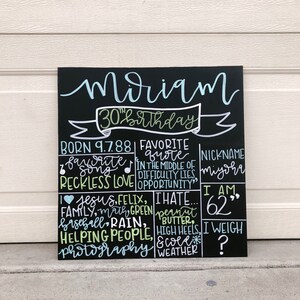 Miriam
30TH birthday
BORN 9.7.88
favorite
song
RECKLESS LOVE
FAVORITE
quote
"IN THE MIDDLE OF
DIFFICULTY LIES
OPPORTUNITY"
NICKNAME
miyora
I AM
62"
I WEIGH
?
I ♥ Jesus, FELIX,
FAMILY, math, GREEN
baseball, RAIN,
HELPING PEOPLE,
photography
I HATE...
peanut
BUTTER,
HIGH HEELS
& COLD
WEATHER